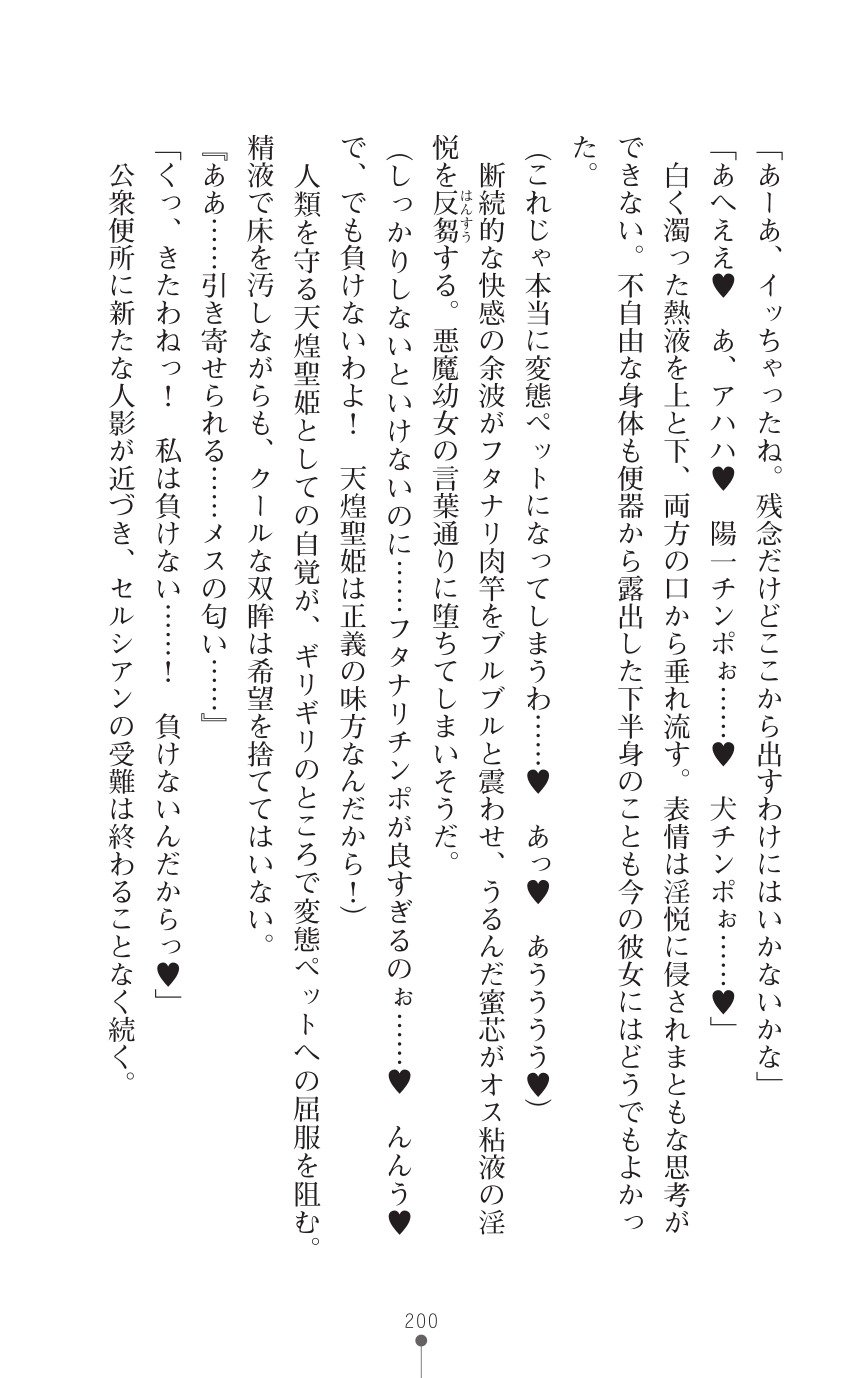 「あーあ、イッちゃったね。残念だけどここから出すわけにはいかないかな」
「あへええ♥　あ、アハハ♥　陽一チンポぉ……♥　犬チンポぉ……♥」
　白く濁った熱液を上と下、両方の口から垂れ流す。表情は淫悦に侵されまともな思考が
できない。不自由な身体も便器から露出した下半身のことも今の彼女にはどうでもよかっ
た。
（これじゃ本当に変態ペットになってしまうわ……♥　あっ♥　あうううう♥）
　断続的な快感の余波がフタナリ肉竿をブルブルと震わせ、うるんだ蜜芯がオス粘液の淫
悦を反芻はんすうする。悪魔幼女の言葉通りに堕ちてしまいそうだ。
（しっかりしないといけないのに……フタナリチンポが良すぎるのぉ……♥　んんう♥
で、でも負けないわよ！　天煌聖姫は正義の味方なんだから！）
　人類を守る天煌聖姫としての自覚が、ギリギリのところで変態ペットへの屈服を阻む。
精液で床を汚しながらも、クールな双眸は希望を捨ててはいない。
『ああ……引き寄せられる……メスの匂い……』
「くっ、きたわねっ！　私は負けない……！　負けないんだからっ♥」
　公衆便所に新たな人影が近づき、セルシアンの受難は終わることなく続く。
200